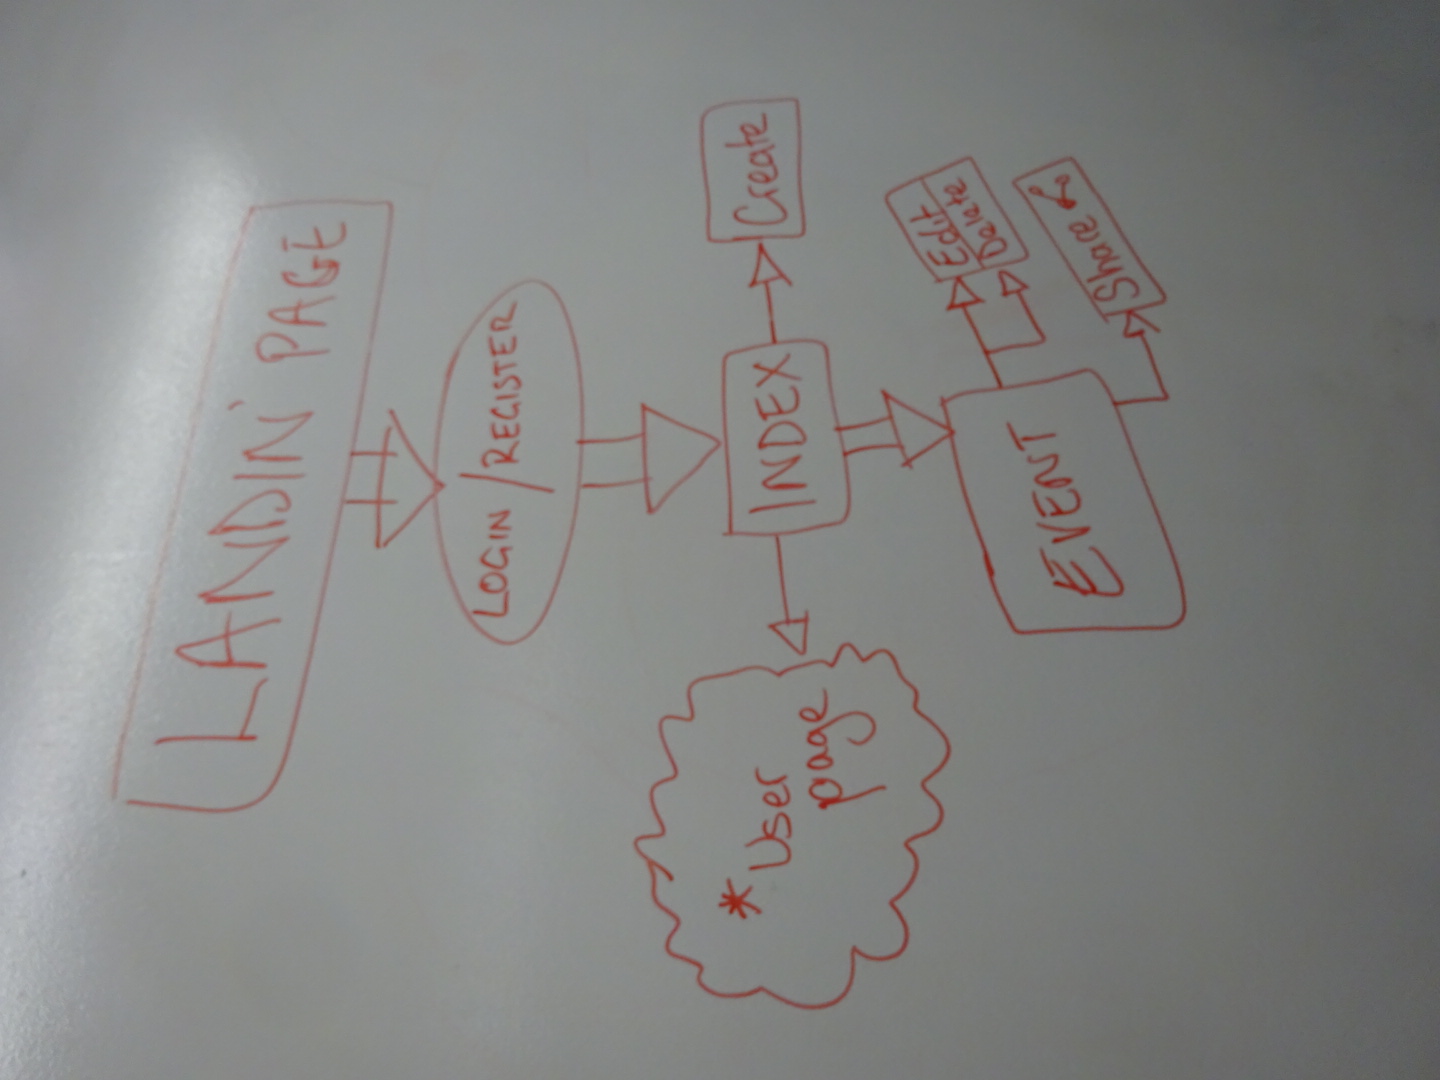 LANDIN' PAGE
LOGIN / REGISTER
* User
page
INDEX
Create
EVENT
Edit
Delete
Share